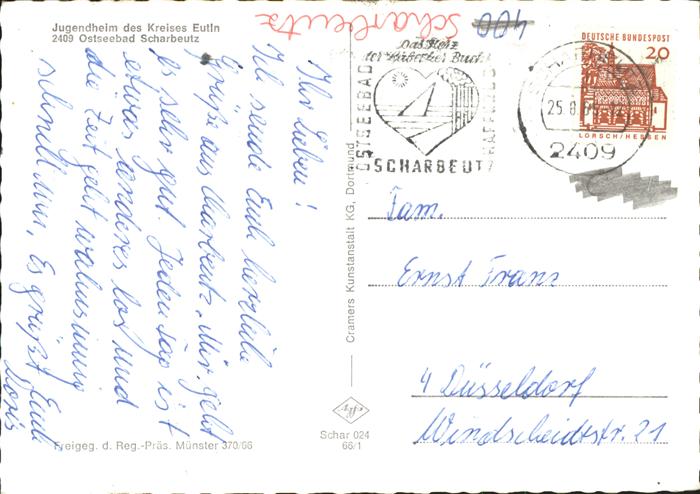 Jugendheim des Kreises Eutin
2409 Ostseebad Scharbeutz
Scharbeutz
400
Ihr Lieben!
Ich sende Euch herzliche
Grüße aus Scharbeutz. Mir geht
es sehr gut. Jeden Tag ist
etwas anderes los und
die Zeit geht wahnsinnig
schnell hin. Es grüßt Euch
Doris
Freigeg. d. Reg.-Präs. Münster 370/66
Cramers Kunstanstalt KG, Dortmund
Schar 024
66/1
Das Herz
der Lübecker Bucht
OSTSEEBAD
SCHARBEUTZ
HAFFKRUG
25.8.
2409
DEUTSCHE BUNDESPOST
20
LORSCH/HESSEN
Fam.
Ernst Franz
4 Düsseldorf
Windscheidtstr. 21